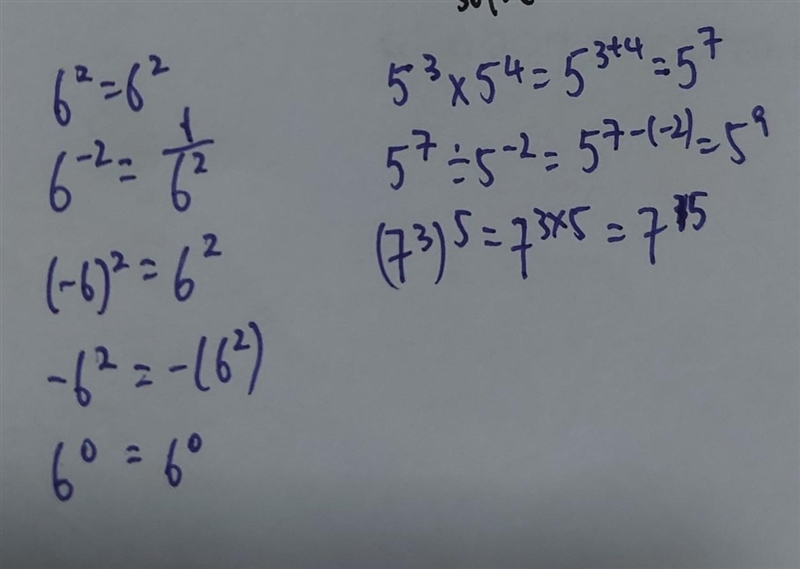 6² = 6²
6⁻² = 1/6²
(-6)² = 6²
-6² = -(6²)
6⁰ = 6⁰
5³ × 5⁴ = 5³⁺⁴ = 5⁷
5⁷ ÷ 5⁻² = 5⁷⁻⁽⁻²⁾ = 5⁹
(7³)⁵ = 7³ˣ⁵ = 7¹⁵